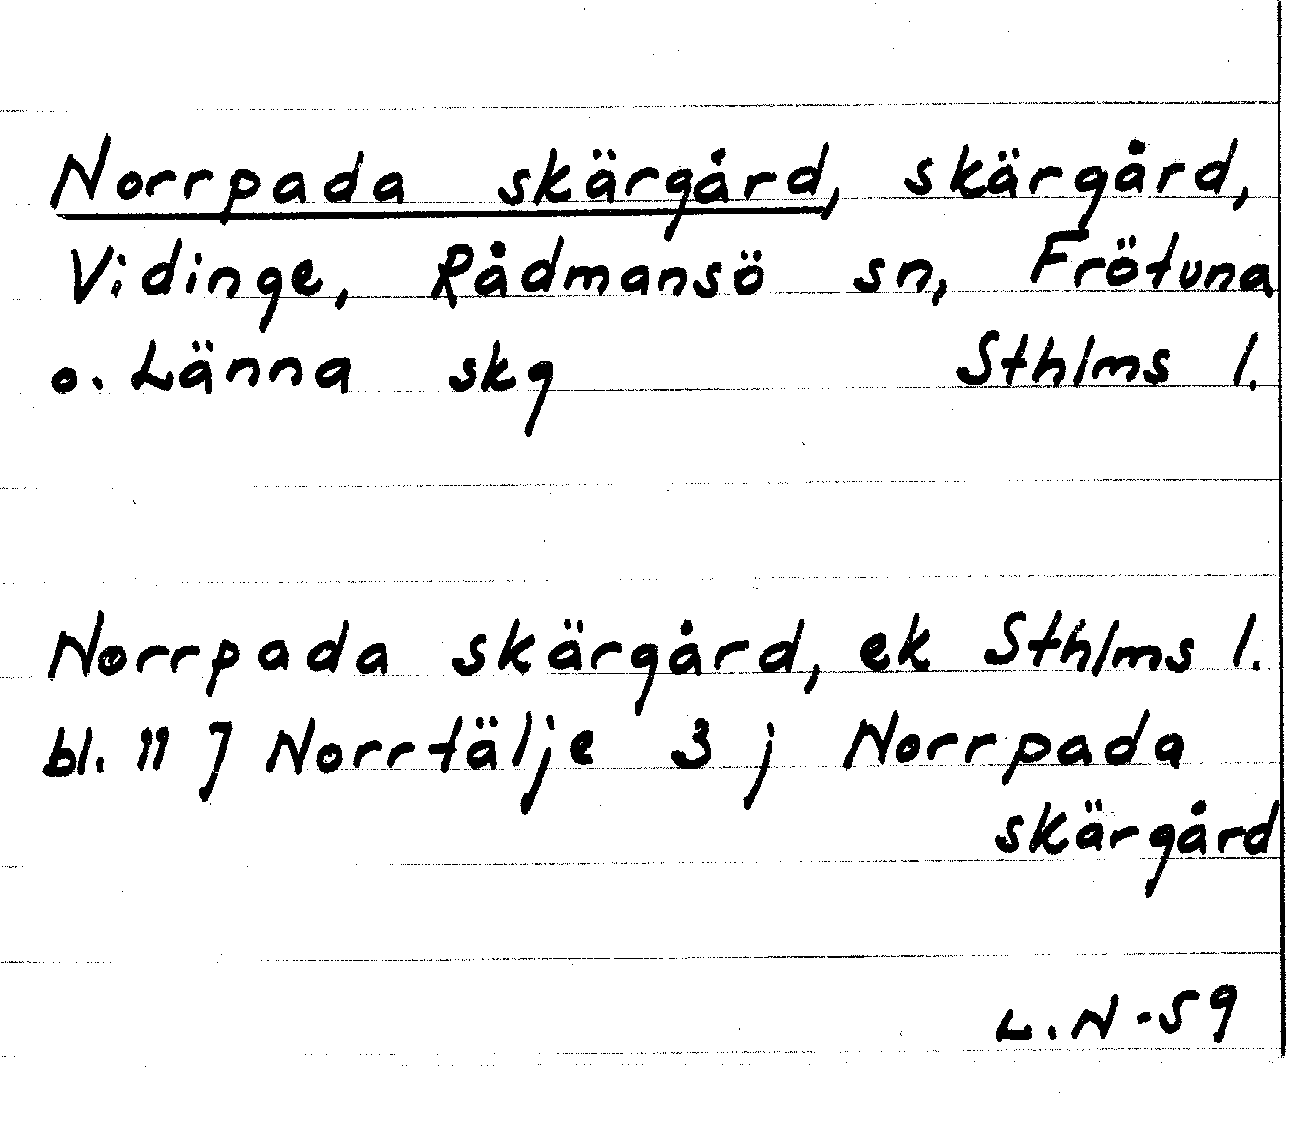 Norrpada skärgård, skärgård,
Vidinge, Rådmansö sn, Frötuna
o. Länna skg Sthlms l.
Norrpada skärgård, ek Sthlms l.
bl. 11 J Norrtälje 3 j Norrpada
skärgård
L.N-59